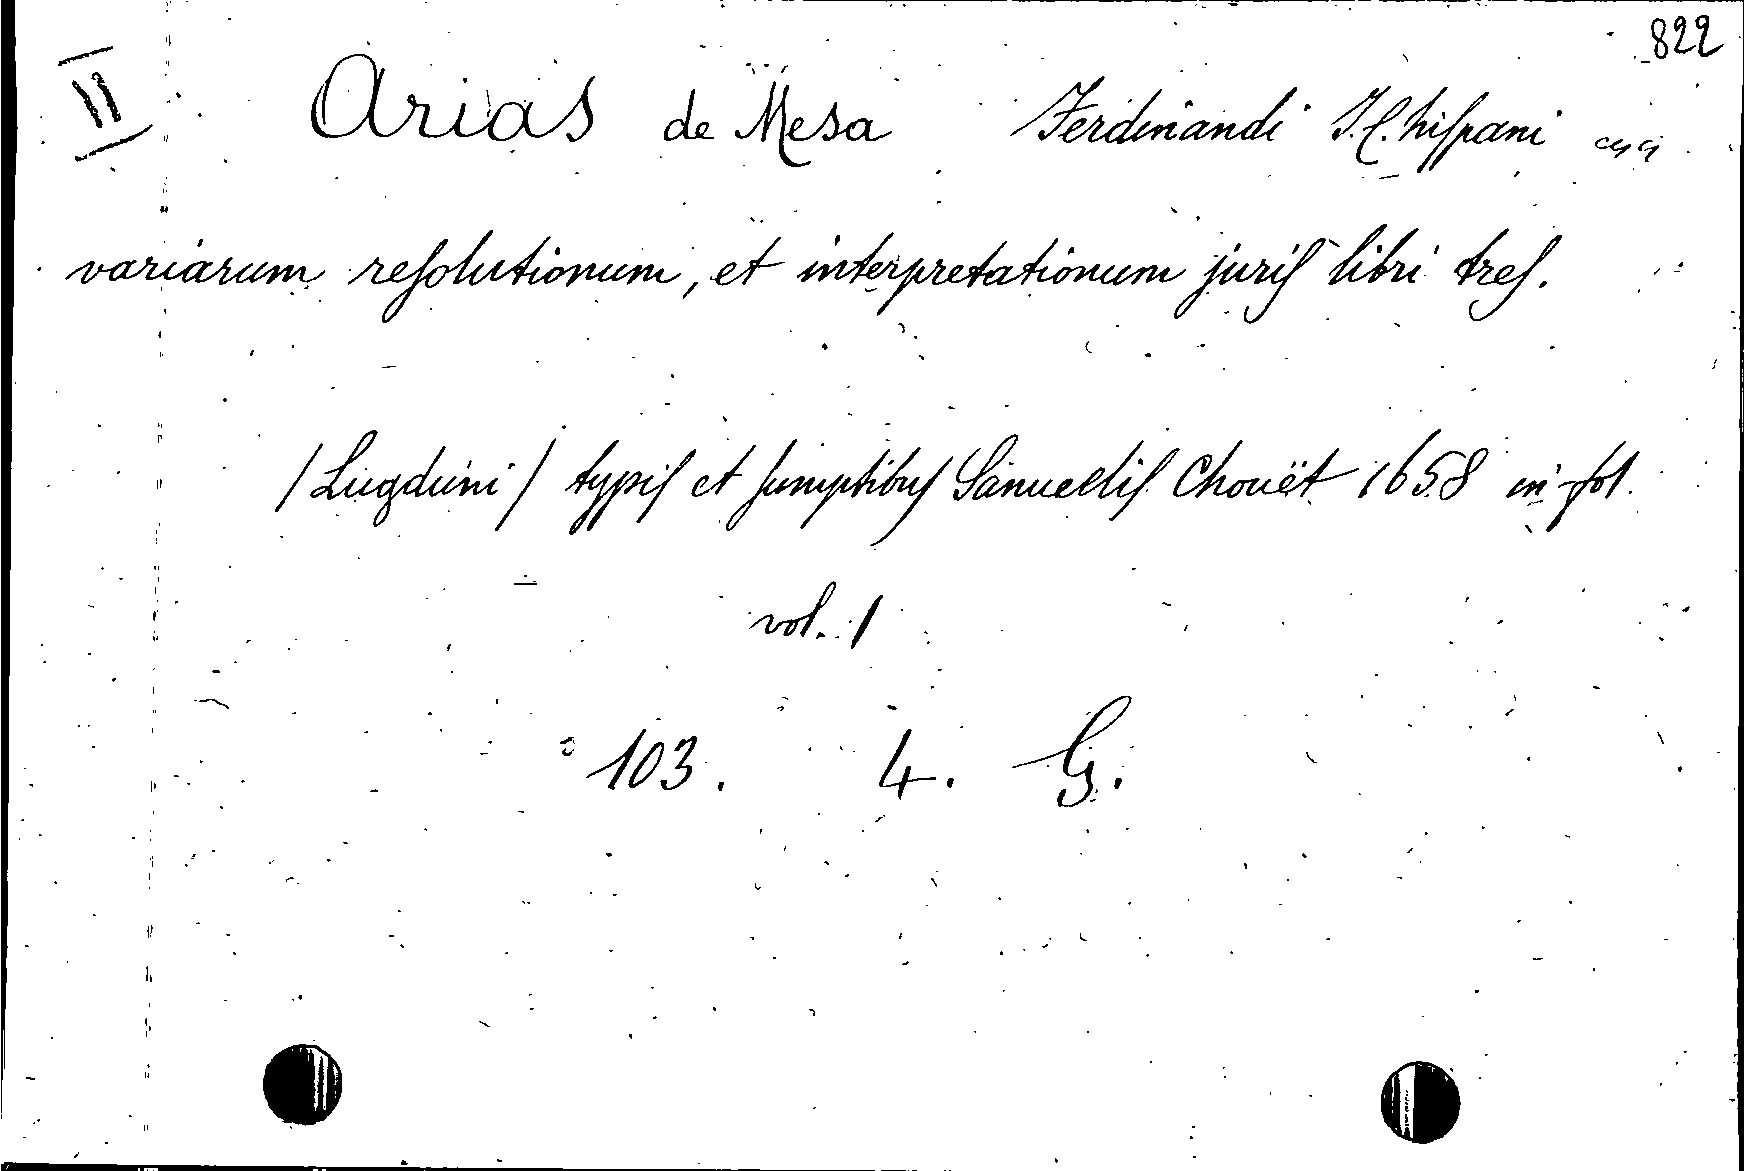 822
II Arias de Mesa Ferdinandi I.C. hiſpani
variarum reſolutionum, et interpretationum juriſ libri treſ.
/Lugduni/ typiſ et ſumptibuſ Samueliſ Chouët 1658 in fol.
vol. 1
103. 4. G.